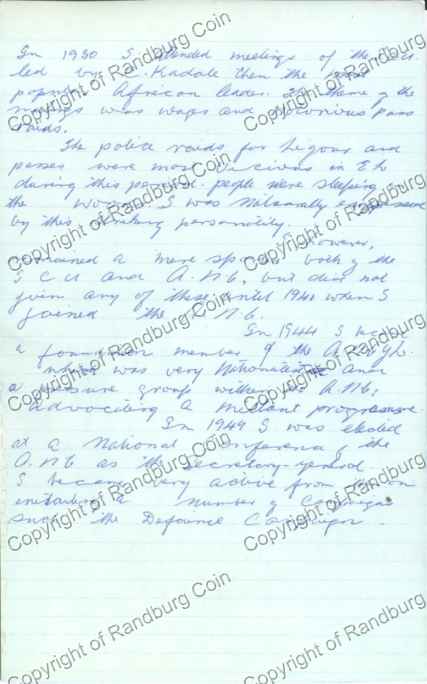 In 1930 I attended meetings of the ICU
led by C. Kadale then the most
popular African leader. The theme of the
meetings was wages and notorious Pass
raids.
The police raids for liquor and
passes were most vicious in EL
during this period. people were sleeping in
the woods. I was naturally
by this personality.
I, however,
remained a mere both of the
I C U and A.N.C, but did not
join any of these until 1940 when I
joined the A.N.C.
In 1944 I
a foundation member of the A.N.C.Y.L.
which was very Nationalistic and
a pressure group within the A.N.C,
advocating a militant programme
In 1949 I was elected
at a National Conference of the
A.N.C as the Secretary-General
I became very active from then on
initiating a number of Campaigns
such the Defiance Campaign.
Copyright of Randburg Coin
Copyright of Randburg Coin
Copyright of Randburg Coin
Copyright of Randburg Coin
Copyright of Randburg Coin
Copyright of Randburg Coin